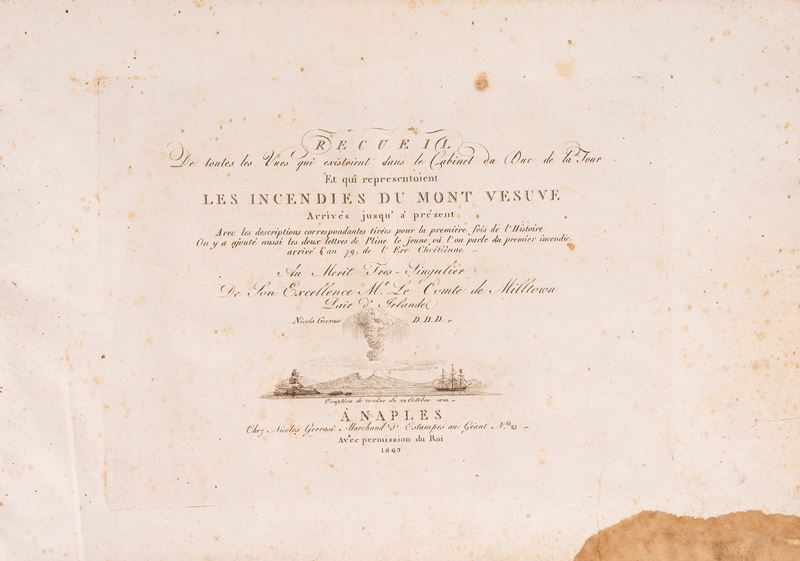 RECUEIL
De toutes les Vues qui existoient dans le Cabinet du Duc de la Tour
Et qui representoient
LES INCENDIES DU MONT VESUVE
Arrivés jusqu' à présent
Avec les descriptions correspondantes tirées pour la première fois de l' Histoire
On y a ajouté aussi les deux lettres de Pline le jeune, où l' on parle du premier incendie
arrivé l' an 79. de l' Ere Chrétienne
Au Merit Très-Singulier
De Son Excellence Mr. Le Comte de Milltown
Pair d' Irlande
Nicola Gervasi D. D. D.
Eruption de cendre du 22 Octobre 1822
À NAPLES
Chez Nicolas Gervasi Marchand d' Estampes au Géant N.º 23
Avec permission du Roi